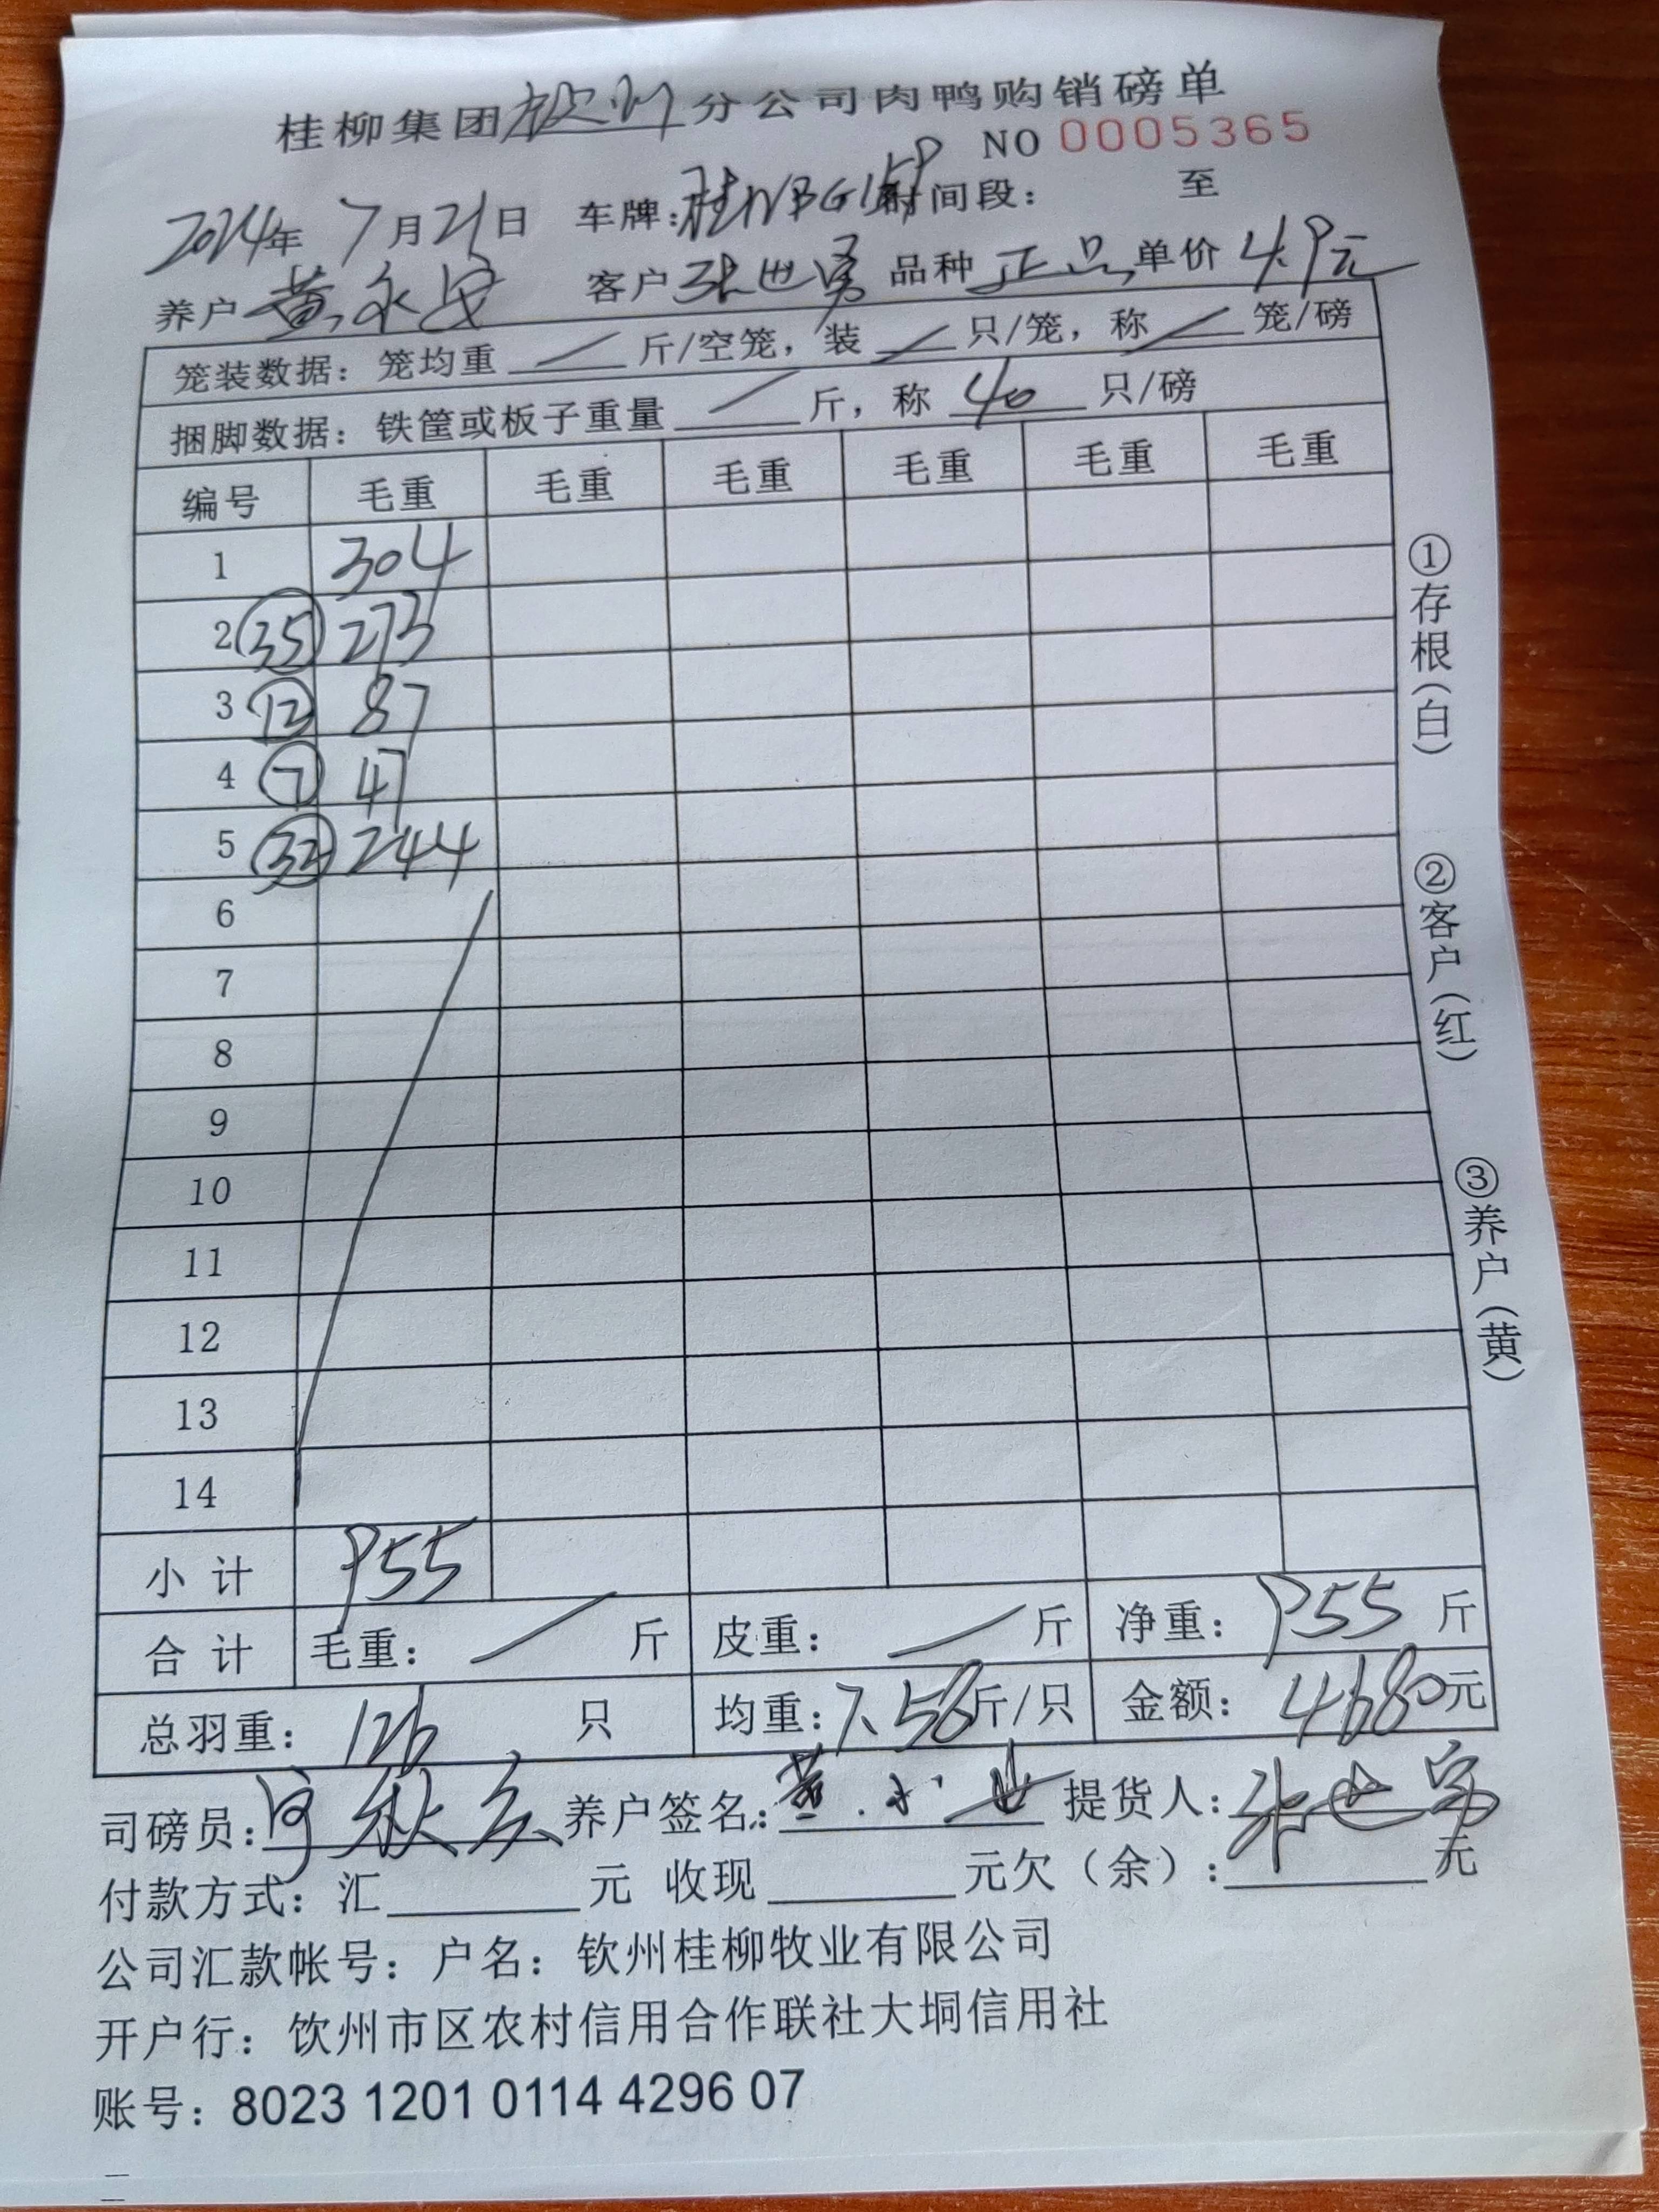 桂柳集团钦州分公司肉鸭购销磅单
NO 0005365
2024年 7月21日 车牌:桂NBG159 时间段: 至
养户 黄永安 客户 张世勇 品种 正品 单价 4.9元
笼装数据: 笼均重 / 斤/空笼, 装 / 只/笼, 称 / 笼/磅
捆脚数据: 铁筐或板子重量 / 斤, 称 40 只/磅
编号 毛重 毛重 毛重 毛重 毛重 毛重
1 304
2 (35) 273
3 (12) 87
4 (7) 47
5 (32) 244
6
7
8
9
10
11
12
13
14
小计 955
合计 毛重: / 斤 皮重: / 斤 净重: 955 斤
总羽重: 126 只 均重: 7.58斤/只 金额: 4680元
司磅员: 养户签名: 黄 提货人: 张世勇
付款方式: 汇 元 收现 元欠(余): 元
公司汇款帐号: 户名: 钦州桂柳牧业有限公司
开户行: 饮州市区农村信用合作联社大垌信用社
账号: 8023 1201 0114 4296 07
①存根(白)
②客户(红)
③养户(黄)